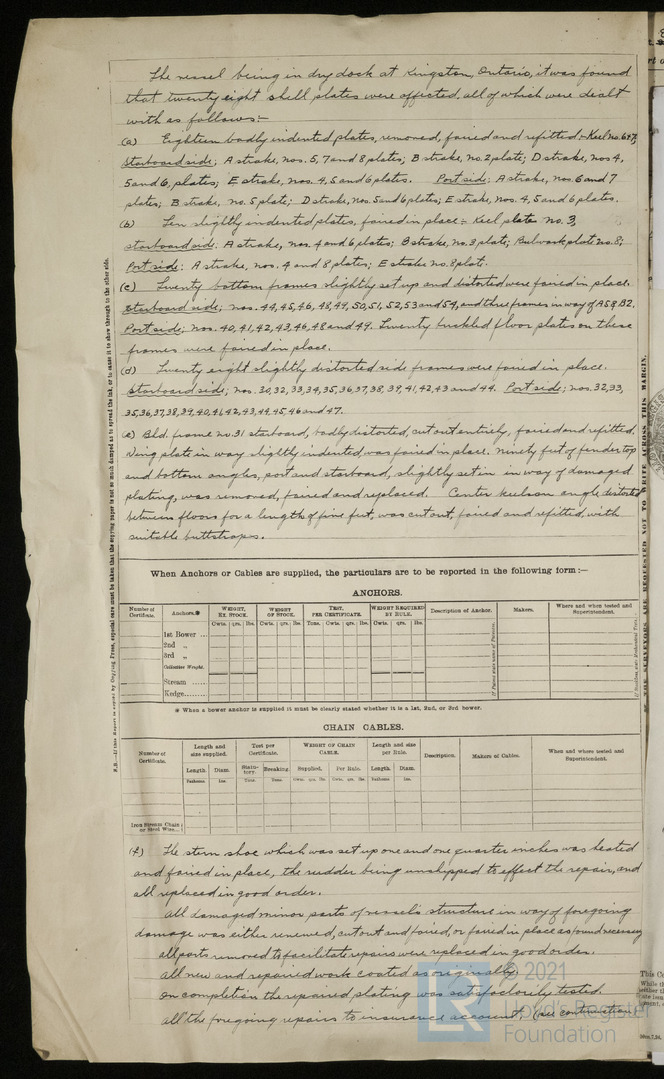 The vessel being in dry dock at Kingston, Ontario, it was found
that twenty eight shell plates were affected, all of which were dealt
with as follows:-
(a) Eighteen badly indented plates, removed, faired and refitted:- Keel no. 6 & 7;
Starboard side; A strake, nos. 5, 7 and 8 plates; B strake, no. 2 plate; D strake, nos 4,
5 and 6, plates; E strake, nos. 4, 5 and 6 plates. Port side: A strake, nos 6 and 7
plates; B strake, no. 5 plate; D strake, nos. 5 and 6 plates; E strake, nos. 4, 5 and 6 plates.
(b) Ten slightly indented plates, faired in place:- Keel plate no. 3,
starboard side: A strake, nos. 4 and 6 plates; B strake, no. 3 plate; Bulwark plate no. 8;
Port side; A strake, nos. 4 and 8 plates; E strake no. 8 plate.
(c) Twenty bottom frames slightly set up and distorted were faired in place.
Starboard side; nos. 44, 45, 46, 48, 49, 50, 51, 52, 53 and 54, and three frames in way of A5 & B2.
Port side; nos. 40, 41, 42, 43, 46, 48 and 49. Twenty buckled floor plates on these
frames were faired in place.
(d) Twenty eight slightly distorted side frames were faired in place.
Starboard side; nos. 30, 32, 33, 34, 35, 36, 37, 38, 39, 41, 42, 43 and 44. Port side; nos. 32, 33,
35, 36, 37, 38, 39, 40, 41, 42, 43, 44, 45, 46 and 47.
(e) Bhd. frame no. 31 starboard, badly distorted, cut out entirely, faired and refitted.
Wing plate in way slightly indented, was faired in place. Ninety feet of fender top
and bottom angles, port and starboard, slightly set in in way of damaged
plating, was removed, faired and replaced. Center keelson angle distorted
between floors for a length of five feet, was cut out, faired and refitted, with
suitable buttstraps.
When Anchors or Cables are supplied, the particulars are to be reported in the following form :—
ANCHORS.
Number of Certificate. Anchors.* WEIGHT, EX STOCK. WEIGHT OF STOCK. TEST, PER CERTIFICATE. WEIGHT REQUIRED BY RULE. Description of Anchor. Makers. Where and when tested and Superintendent.
Cwts. qrs. lbs. Cwts. qrs. lbs. Tons. Cwts. qrs. lbs. Cwts. qrs. lbs.
1st Bower ...
2nd „
3rd „
Collective Weight.
Stream ......
Kedge.......
* When a bower anchor is supplied it must be clearly stated whether it is a 1st, 2nd, or 3rd bower.
CHAIN CABLES.
Number of Certificate. Length and size supplied. Test per Certificate. WEIGHT OF CHAIN CABLE. Length and size per Rule. Description. Makers of Cables. When and where tested and Superintendent.
Length. Diam. Statutory. Breaking. Supplied. Per Rule. Length. Diam.
Fathoms. Ins. Tons. Tons. Cwts. qrs. lbs. Cwts. qrs. lbs. Fathoms. Ins.
Iron Stream Chain
or Steel Wire...
(f) The stern shoe which was set up one and one quarter inches was heated
and faired in place, the rudder being unshipped to effect the repairs, and
all replaced in good order.
All damaged minor parts of vessel's structure in way of foregoing
damage was either renewed, cut out and faired, or faired in place as found necessary
All parts removed to facilitate repairs were replaced in good order.
All new and repaired work coated as originally.
On completion the repaired plating was satisfactorily tested.
All the foregoing repairs to insurance account. (see continuation
© 2021
Lloyd's Register
Foundation